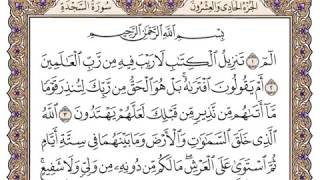 الجزء الحادي والعشرون
سورة السجدة
بِسْمِ ٱللَّهِ ٱلرَّحْمَٰنِ ٱلرَّحِيمِ
الٓمٓ ۝١ تَنزِيلُ ٱلْكِتَٰبِ لَا رَيْبَ فِيهِ مِن رَّبِّ ٱلْعَٰلَمِينَ
۝٢ أَمْ يَقُولُونَ ٱفْتَرَىٰهُ ۚ بَلْ هُوَ ٱلْحَقُّ مِن رَّبِّكَ لِتُنذِرَ قَوْمًا
مَّآ أَتَىٰهُم مِّن نَّذِيرٍ مِّن قَبْلِكَ لَعَلَّهُمْ يَهْتَدُونَ ۝٣ ٱللَّهُ
ٱلَّذِى خَلَقَ ٱلسَّمَٰوَٰتِ وَٱلْأَرْضَ وَمَا بَيْنَهُمَا فِى سِتَّةِ أَيَّامٍ
ثُمَّ ٱسْتَوَىٰ عَلَى ٱلْعَرْشِ ۖ مَا لَكُم مِّن دُونِهِۦ مِن وَلِىٍّ وَلَا شَفِيعٍ ۚ